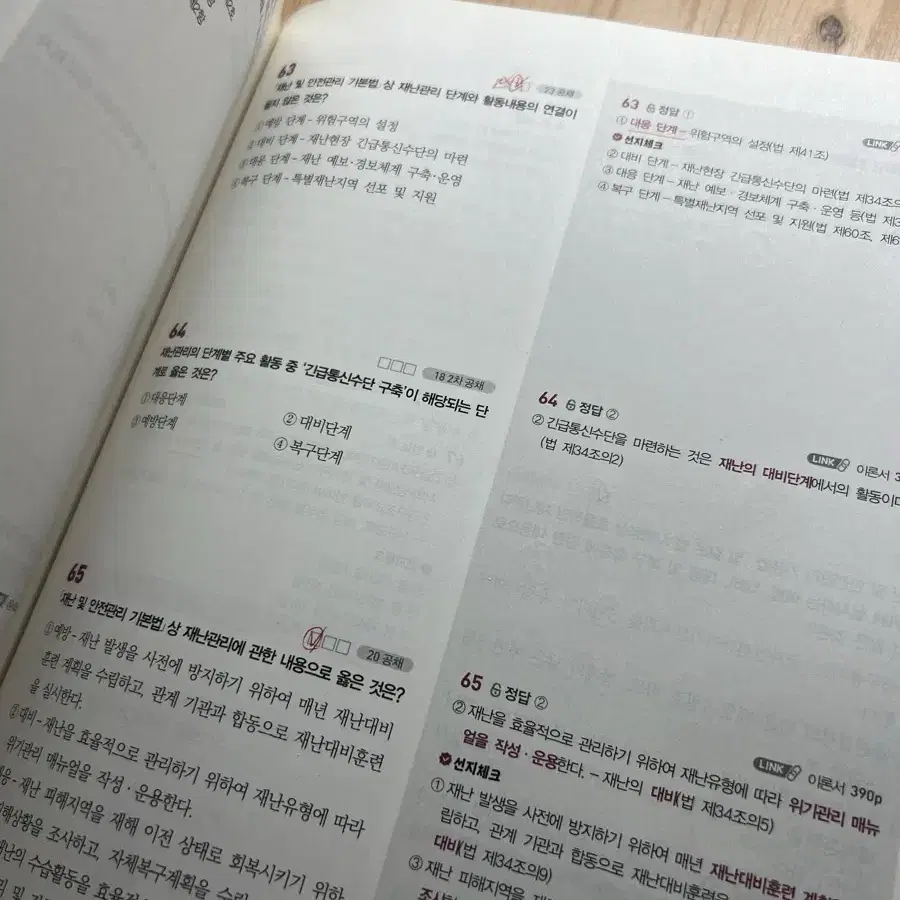 63
23 공채
「재난 및 안전관리 기본법」상 재난관리 단계와 활동내용의 연결이
옳지 않은 것은?
① 예방 단계 – 위험구역의 설정
② 대비 단계 – 재난현장 긴급통신수단의 마련
③ 대응 단계 – 재난 예보·경보체계 구축·운영
④ 복구 단계 – 특별재난지역 선포 및 지원
64
18 2차 공채
재난관리의 단계별 주요 활동 중 '긴급통신수단 구축'이 해당되는 단
계로 옳은 것은?
① 대응단계
② 대비단계
③ 예방단계
④ 복구단계
65
20 공채
「재난 및 안전관리 기본법」상 재난관리에 관한 내용으로 옳은 것은?
① 예방 – 재난 발생을 사전에 방지하기 위하여 매년 재난대비
훈련 계획을 수립하고, 관계 기관과 합동으로 재난대비훈련
을 실시한다.
② 대비 – 재난을 효율적으로 관리하기 위하여 재난유형에 따라
위기관리 매뉴얼을 작성·운용한다.
대응 – 재난 피해지역을 재해 이전 상태로 회복시키기 위하
피해상황을 조사하고, 자체복구계획을 수립
재난의 수습활동을 효율적
63 정답 ①
LINK
① 대응 단계 – 위험구역의 설정(법 제41조)
선지체크
② 대비 단계 – 재난현장 긴급통신수단의 마련(법 제34조의
③ 대응 단계 – 재난 예보·경보체계 구축·운영 등(법 제3
④ 복구 단계 – 특별재난지역 선포 및 지원(법 제60조, 제6
64 정답 ②
LINK 이론서 3
② 긴급통신수단을 마련하는 것은 재난의 대비단계에서의 활동이다
(법 제34조의2)
65 정답 ②
LINK 이론서 390p
② 재난을 효율적으로 관리하기 위하여 재난유형에 따라 위기관리 매뉴
얼을 작성·운용한다. – 재난의 대비(법 제34조의5)
선지체크
① 재난 발생을 사전에 방지하기 위하여 매년 재난대비훈련 계획
립하고, 관계 기관과 합동으로 재난대비훈련을
대비(법 제34조의9)
③ 재난 피해지역을 재
조사하